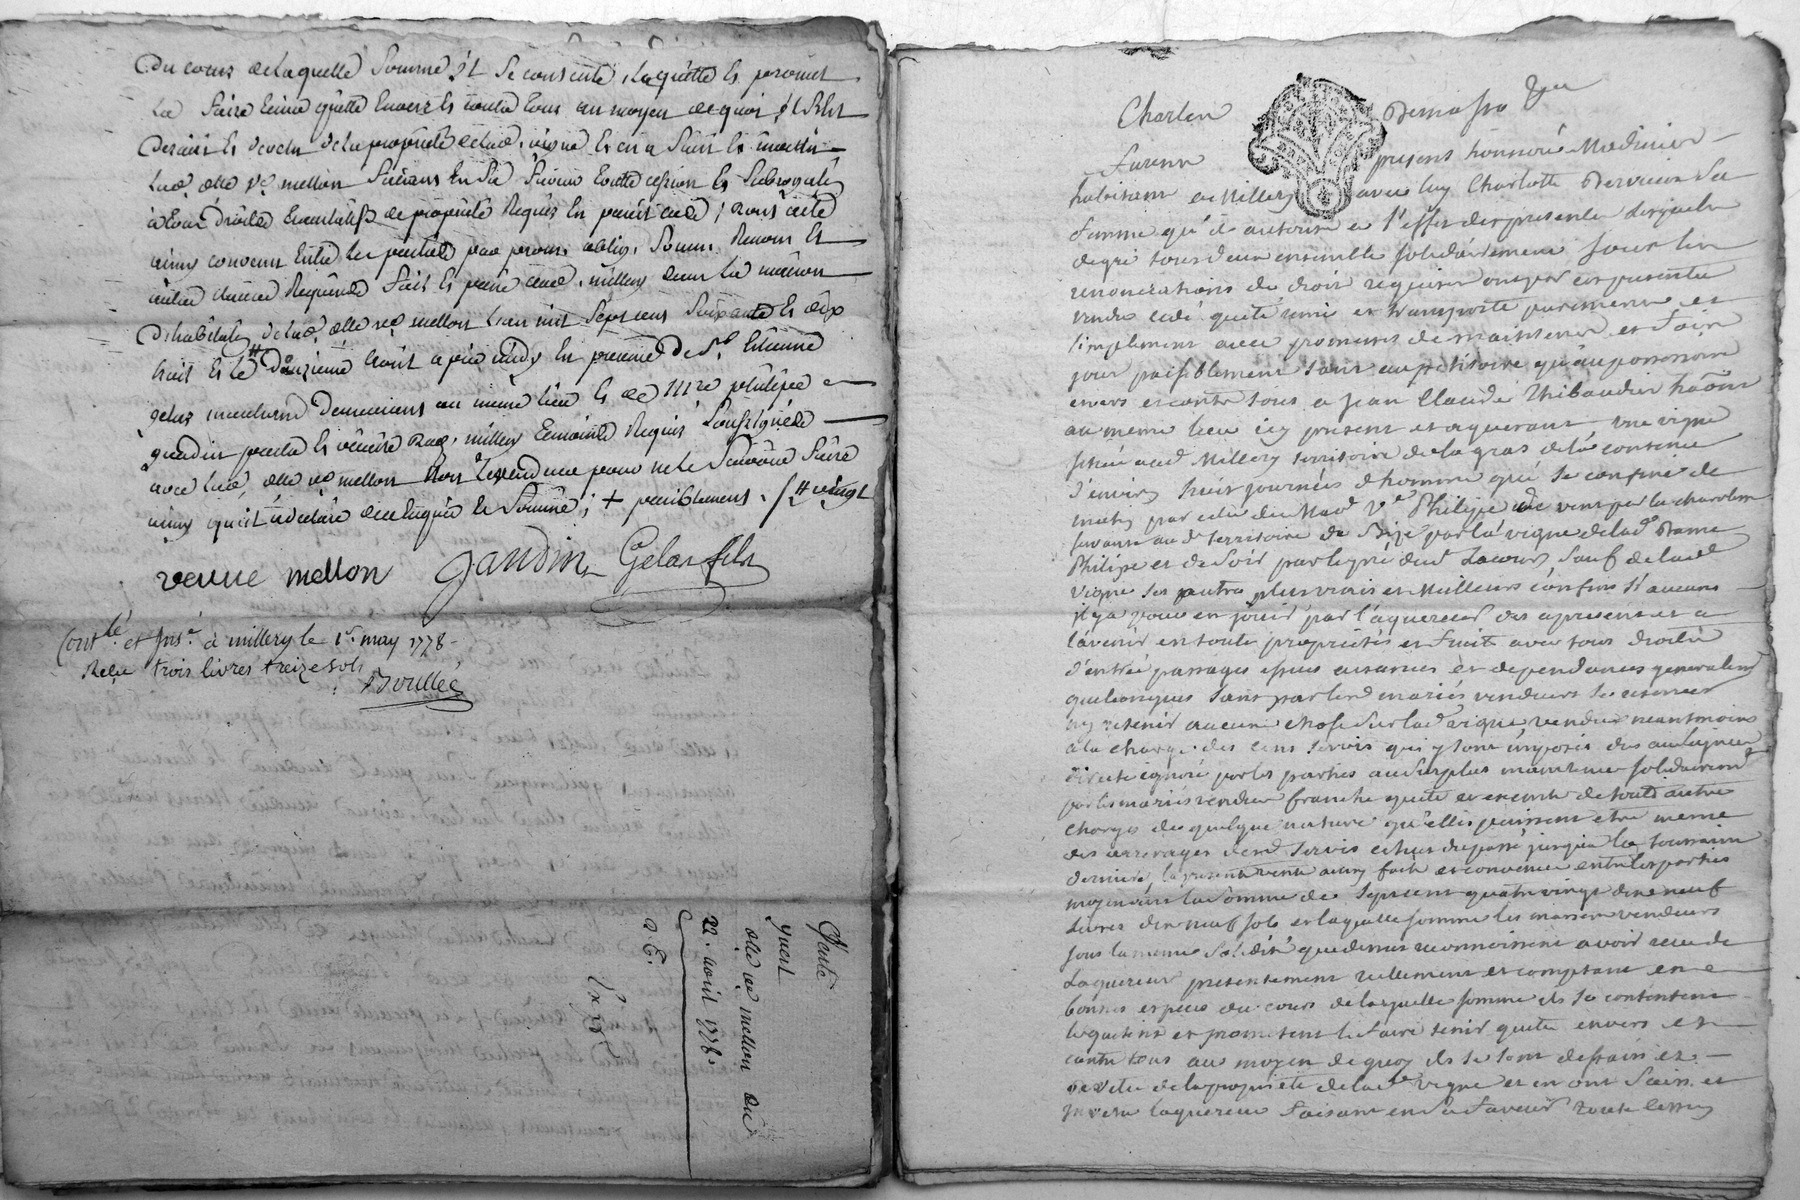 du cours de laquelle somme il se contente, la quitte et promet
la faire tenir quitte envers et contre tous au moyen de quoi il s'est
demis et devetu de la propriété de lad. vigne et en a saisi et investit
lad. dlle ve. mellon faisans en sa faveur toutte cession et subrogation
à tous droits de propriété requis en pareil cas ; dont acte
ainsy convenu entre les parties par prom. oblig. soum. renon. et
autres clauses requises fait et passé aud. millery dans la maison
d'habitation de lad. dlle ve. mellon l'an mil sept cent soixante et dix
huit et le douzieme avril après midy en presence de Sr. Etienne
gelas demeurant au même lieu et de
gaudin aud. millery temoins requis soussignés
avec lad. dlle ve mellon non le vendeur pour ne le savoir faire
ainsy qu'il a declaré de ce enquis et sommé ; + paisiblement. // vingt
veuve mellon gaudin Gelas fils
Contlé. et Insé. à millery le 1er. may 1778
Reçu trois livres treize sols
Boullée
Vente
dlle ve mellon du
22. avril 1778.
Charles
femme present honnoré Medinier
habitant de Millery avec luy Charlotte Dervieux sa
femme qu'il autorise à l'effet des presentes lesquels
de gré tous deux ensemble solidairement sous les
renonciations de droit requises ont par ces presentes
vendu cedé quitté remis et transporté purement et
simplement avec promesse de maintenir et faire
jouir paisiblement tant au petitoire qu'au possessoire
envers et contre tous a Jean Claude Thibaudier
au meme lieu icy present et aquereur une vigne
située aud Millery territoire de la gras de la contenue
d'environ huit journées d'homme qui se confine de
matin par celle de Mad. Ve Philipe de vent par la
suivant aud territoire de par la vigne de lad Dame
Philipe et de soir par le pré dud Sauf de lad
vigne ses autres plus vrais et meilleurs confins s'il aucuns
il y a pour en jouir par l'aquereur des a present et a
l'avenir en toute proprietés et fruits avec tous droits
d'entrée passages issues aisances et dependances generalement
quelconques sans par lesd mariés vendeurs se reserver
ny retenir aucune chose sur lad vigne vendue neantmoins
a la charge des cens servis qui y sont imposés dus au seigneur
direct ignoré par les parties au surplus maintenue solidairement
par les mariés vendeurs franche quitte et exempte de toutes autres
charges de quelque nature qu'elles puissent etre meme
des arrerages desd servis echus du passé jusqu'à la toussaint
derniere la presente vente ainsy faite et convenue entre les parties
moyennant la somme de sept cent quatre vingt dix neuf
livres dix neuf sols et laquelle somme les mariés vendeurs
sous la meme solidité que dessus reconnoissent avoir reçu de
l'aquereur presentement reellement et comptant en
bonnes especes du cours de laquelle somme ils se contentent
le quittent et promettent le faire tenir quitte envers et
contre tous au moyen de quoy ils se sont desaisis et
devetu de la proprieté de lad vigne et en ont saisi et
investi l'aquereur faisant en sa faveur toute cession